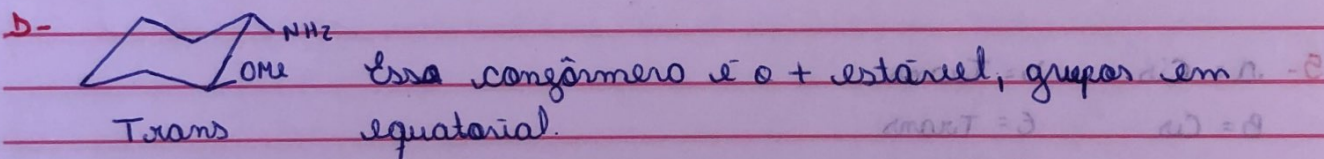 D-
NH2
OMe Esse confôrmero é o + estável, grupos em
Trans equatorial.